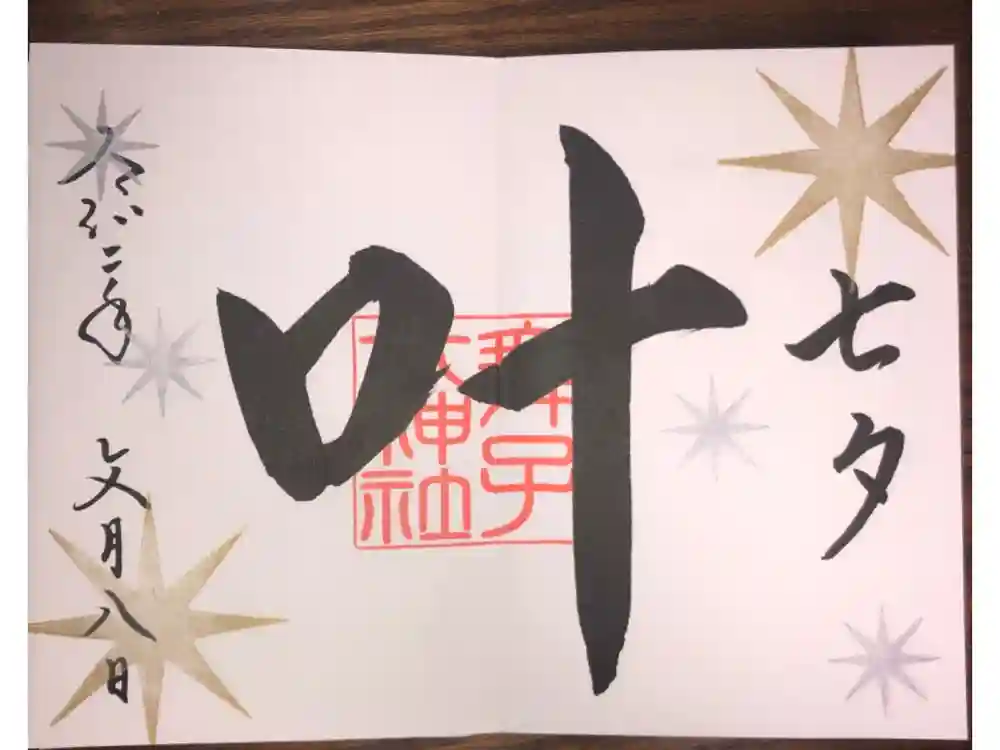 七夕
叶
舞子
六神社
令和二年 文月八日